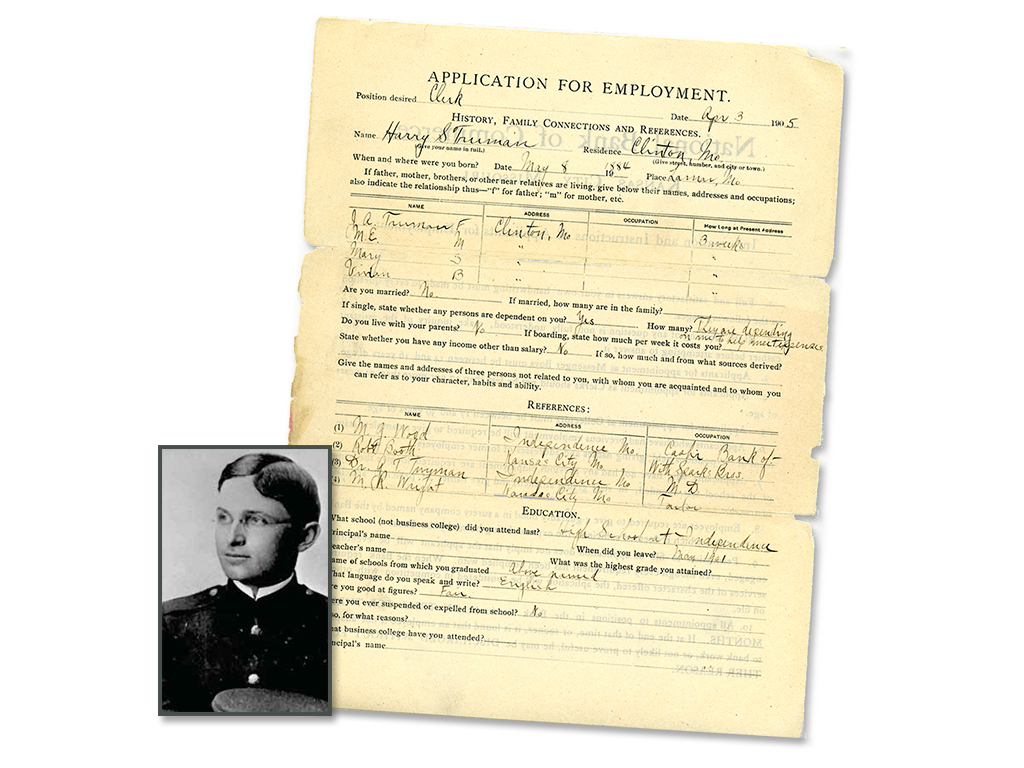 APPLICATION FOR EMPLOYMENT.
Position desired Clerk
Date Apr 3 1905
HISTORY, FAMILY CONNECTIONS AND REFERENCES.
Name Harry S Truman Residence Clinton, Mo.
(Give your name in full.) (Give street, number, and city or town.)
When and where were you born? Date May 8 1884 19 Place Lamar, Mo.
If father, mother, brothers, or other near relatives are living, give below their names, addresses and occupations;
also indicate the relationship thus—"f" for father; "m" for mother, etc.
NAME ADDRESS OCCUPATION How Long at Present Address
J. A. Truman F Clinton, Mo 3 weeks
M. E. M " "
Mary S " "
Vivian B " "
Are you married? No. If married, how many are in the family?
If single, state whether any persons are dependent on you? Yes How many? They are depending
Do you live with your parents? No If boarding, state how much per week it costs you? on me to help meet expenses
State whether you have any income other than salary? No If so, how much and from what sources derived?
Give the names and addresses of three persons not related to you, with whom you are acquainted and to whom you
can refer as to your character, habits and ability.
REFERENCES:
NAME ADDRESS OCCUPATION
(1) M. Wood Independence Mo. Bank of
(2) Robt Booth Kansas City Mo With Bros.
(3) Dr. G T Twyman Independence Mo M D
M. R. Wright Kansas City Mo
EDUCATION.
hat school (not business college) did you attend last? High School at Independence
rincipal's name When did you leave? May 1901
eacher's name What was the highest grade you attained?
ame of schools from which you graduated Above named
hat language do you speak and write? English
re you good at figures? Fair.
ere you ever suspended or expelled from school? No
so, for what reasons?
hat business college have you attended?
ncipal's name